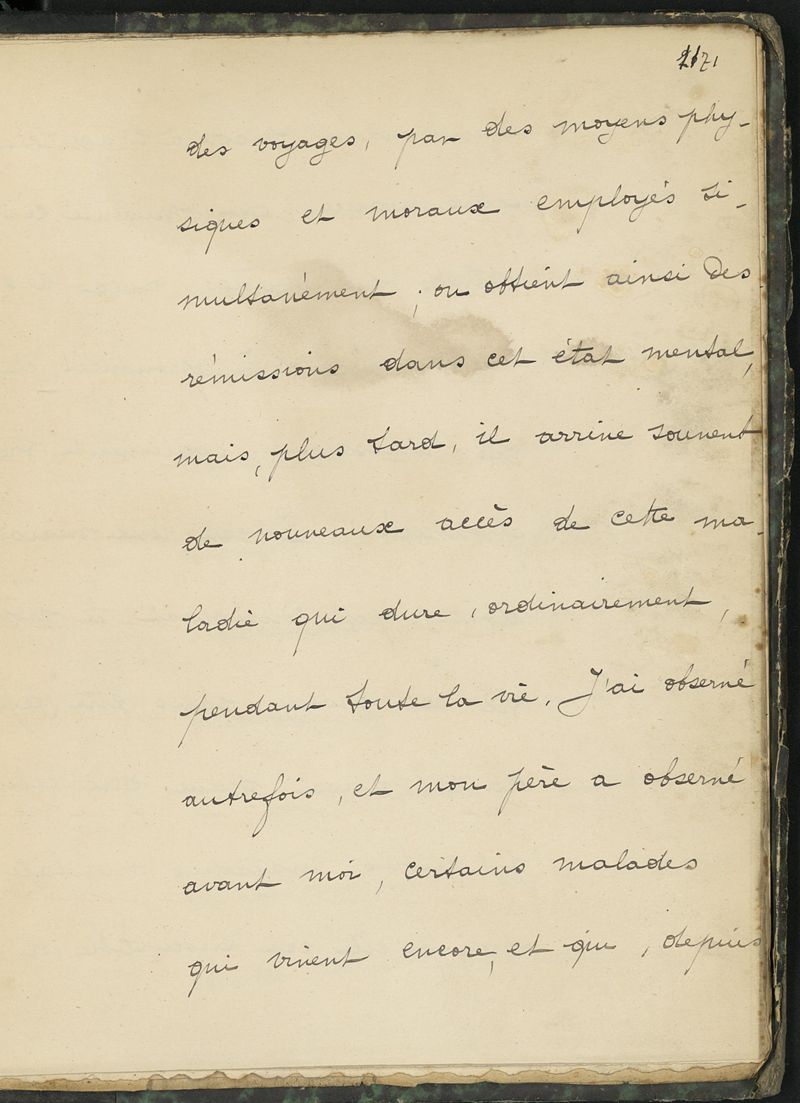 des voyages, par des moyens phy-
siques et moraux employés si-
multanément ; on obtient ainsi des
rémissions dans cet état mental,
mais, plus tard, il arrive souvent
de nouveaux accès de cette ma-
ladie qui dure, ordinairement,
pendant toute la vie. J'ai observé
autrefois, et mon père a observé
avant moi, certains malades
qui vivent encore, et qui, depuis